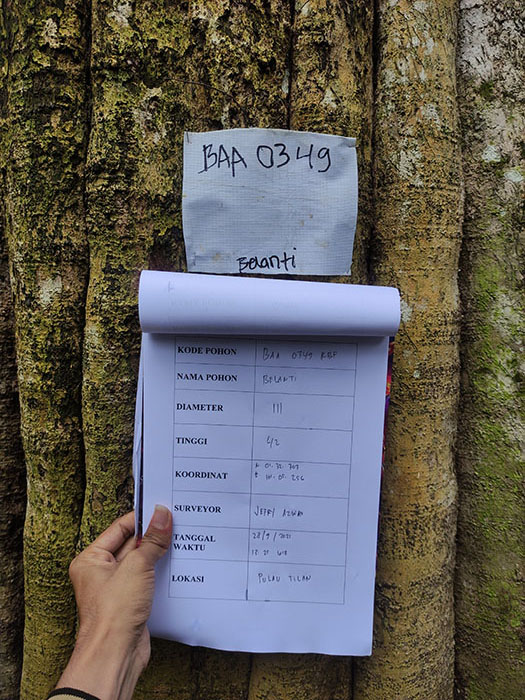 BAA 0349
Belanti
KODE POHON BAA 0349 KBP
NAMA POHON BELANTI
DIAMETER 111
TINGGI 42
KOORDINAT
SURVEYOR JEFRY
TANGGAL 28/9/2021
WAKTU
LOKASI PULAU TILAN